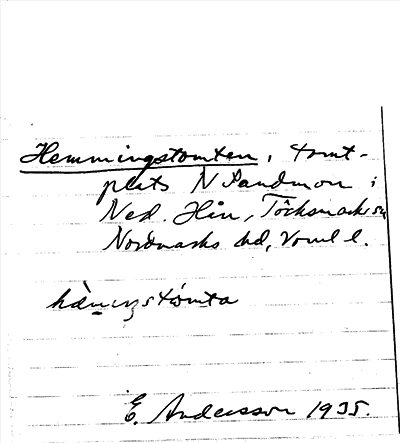 Hemmingstomten, tomt-
plats N Sandmon i
Ned. Hån, Töcksmarks sn
Nordmarks hd, Vrml l.
hæ̀niŋstómta
E. Andersson 1935.